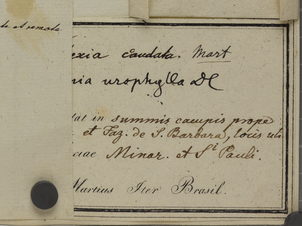 te et remota
exia caudata. Mart
nia urophylla DC
tat in summis campis prope
et Faz. de S. Barbara, locis
ciae Minar. et S<sup>t</sup> Pauli.
Martius Iter Brasil.